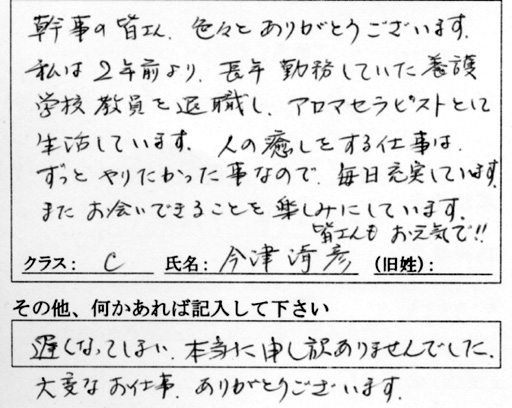 幹事の皆さん、色々とありがとうございます。
私は2年前より、長年勤務していた養護
学校教員を退職し、アロマセラピストとして
生活しています。人の癒しをする仕事は、
ずっとやりたかった事なので、毎日充実しています。
またお会いできることを楽しみにしています。
皆さんもお元気で!!
クラス: C 氏名: 今津 彦 (旧姓):
その他、何かあれば記入して下さい
遅くなってしまい、本当に申し訳ありませんでした。
大変なお仕事、ありがとうございます。